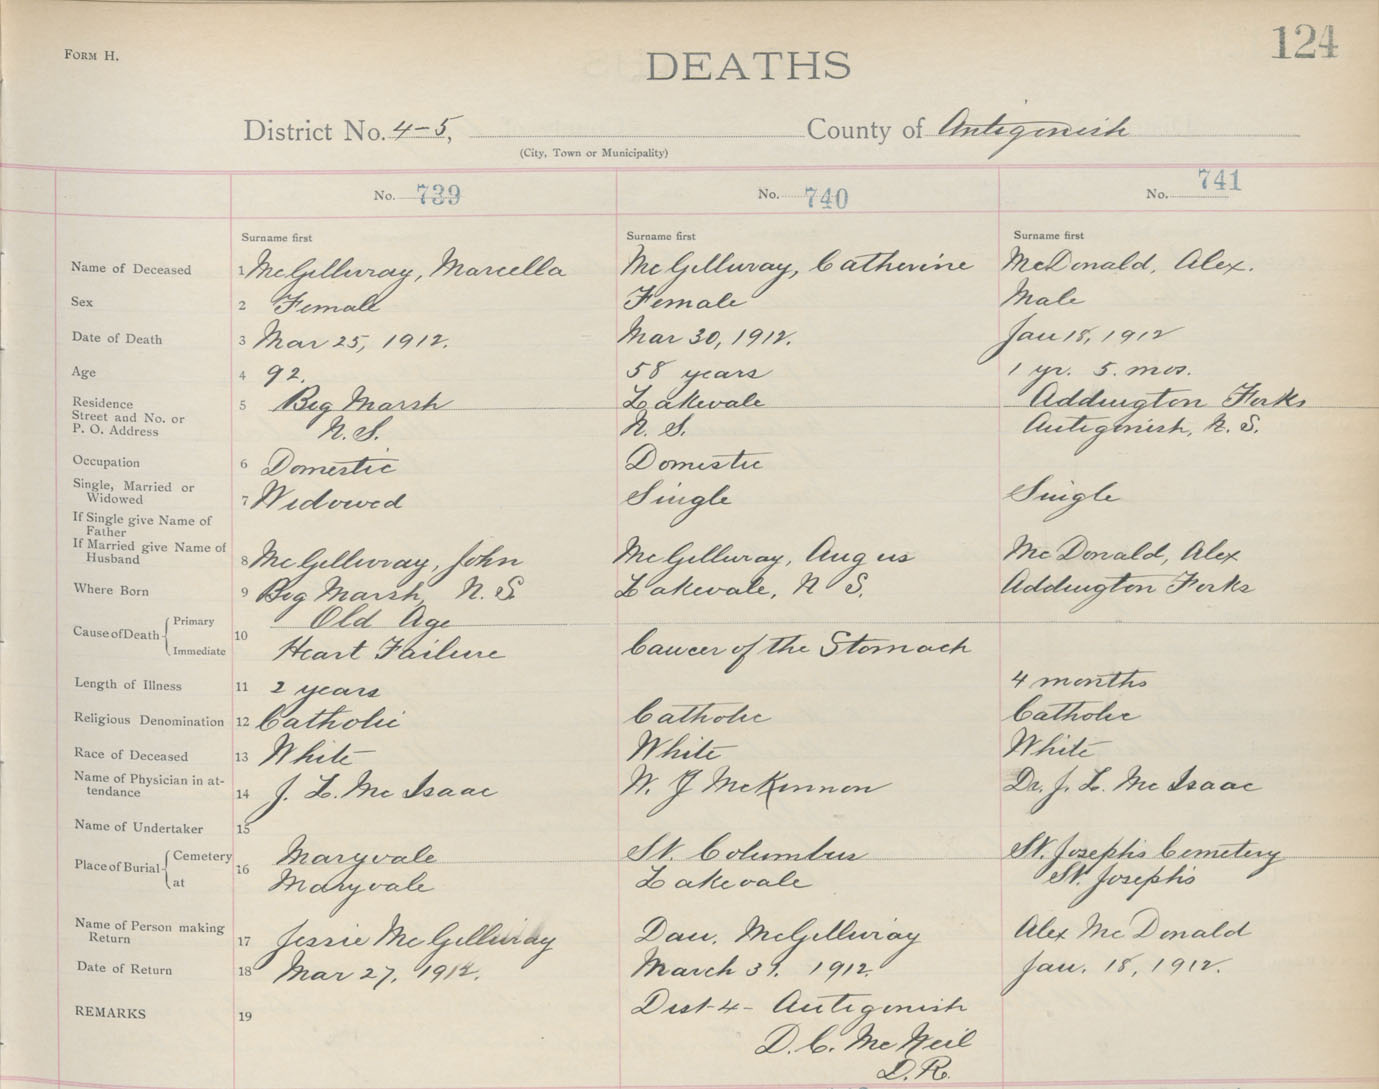 FORM H.
124
DEATHS
District No. 4-5, County of Antigonish
(City, Town or Municipality)
No. 739 No. 740 No. 741
Surname first Surname first Surname first
Name of Deceased 1 McGillivray, Marcella McGillivray, Catherine McDonald, Alex.
Sex 2 Female Female Male
Date of Death 3 Mar 25, 1912. Mar 30, 1912. Jan 18, 1912
Age 4 92. 58 years 1 yr. 5. mos.
Residence 5 Big Marsh Lakevale Addington Forks
Street and No. or
P. O. Address N.S. N. S. Antigonish, N. S.
Occupation 6 Domestic Domestic
Single, Married or
Widowed 7 Widowed Single Single
If Single give Name of
Father
If Married give Name of
Husband 8 McGillivray, John McGillivray, Angus McDonald, Alex
Where Born 9 Big Marsh, N.S. Lakevale, N S. Addington Forks
Cause of Death Primary 10 Old Age
Immediate Heart Failure Cancer of the Stomach
Length of Illness 11 2 years 4 months
Religious Denomination 12 Catholic Catholic Catholic
Race of Deceased 13 White White White
Name of Physician in at-
tendance 14 J. L. McIsaac W. J McKinnon Dr. J. L. McIsaac
Name of Undertaker 15
Place of Burial Cemetery 16 Maryvale St. Columbus St. Joseph's Cemetery
at Maryvale Lakevale St. Joseph's
Name of Person making
Return 17 Jessie McGillivray Dan. McGillivray Alex McDonald
Date of Return 18 Mar 27, 1912. March 31. 1912. Jan. 18, 1912.
REMARKS 19 Dist 4- Antigonish
D. C. McNeil
D.R.